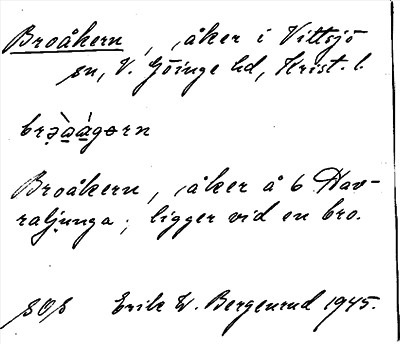 Broåkern, åker i Vittsjö
sn, V. Göinge hd, Krist. l.
Broåkern, åker å 6 Hav-
raljunga; ligger vid en bro.
SOS Erik W. Bergenrud 1945.